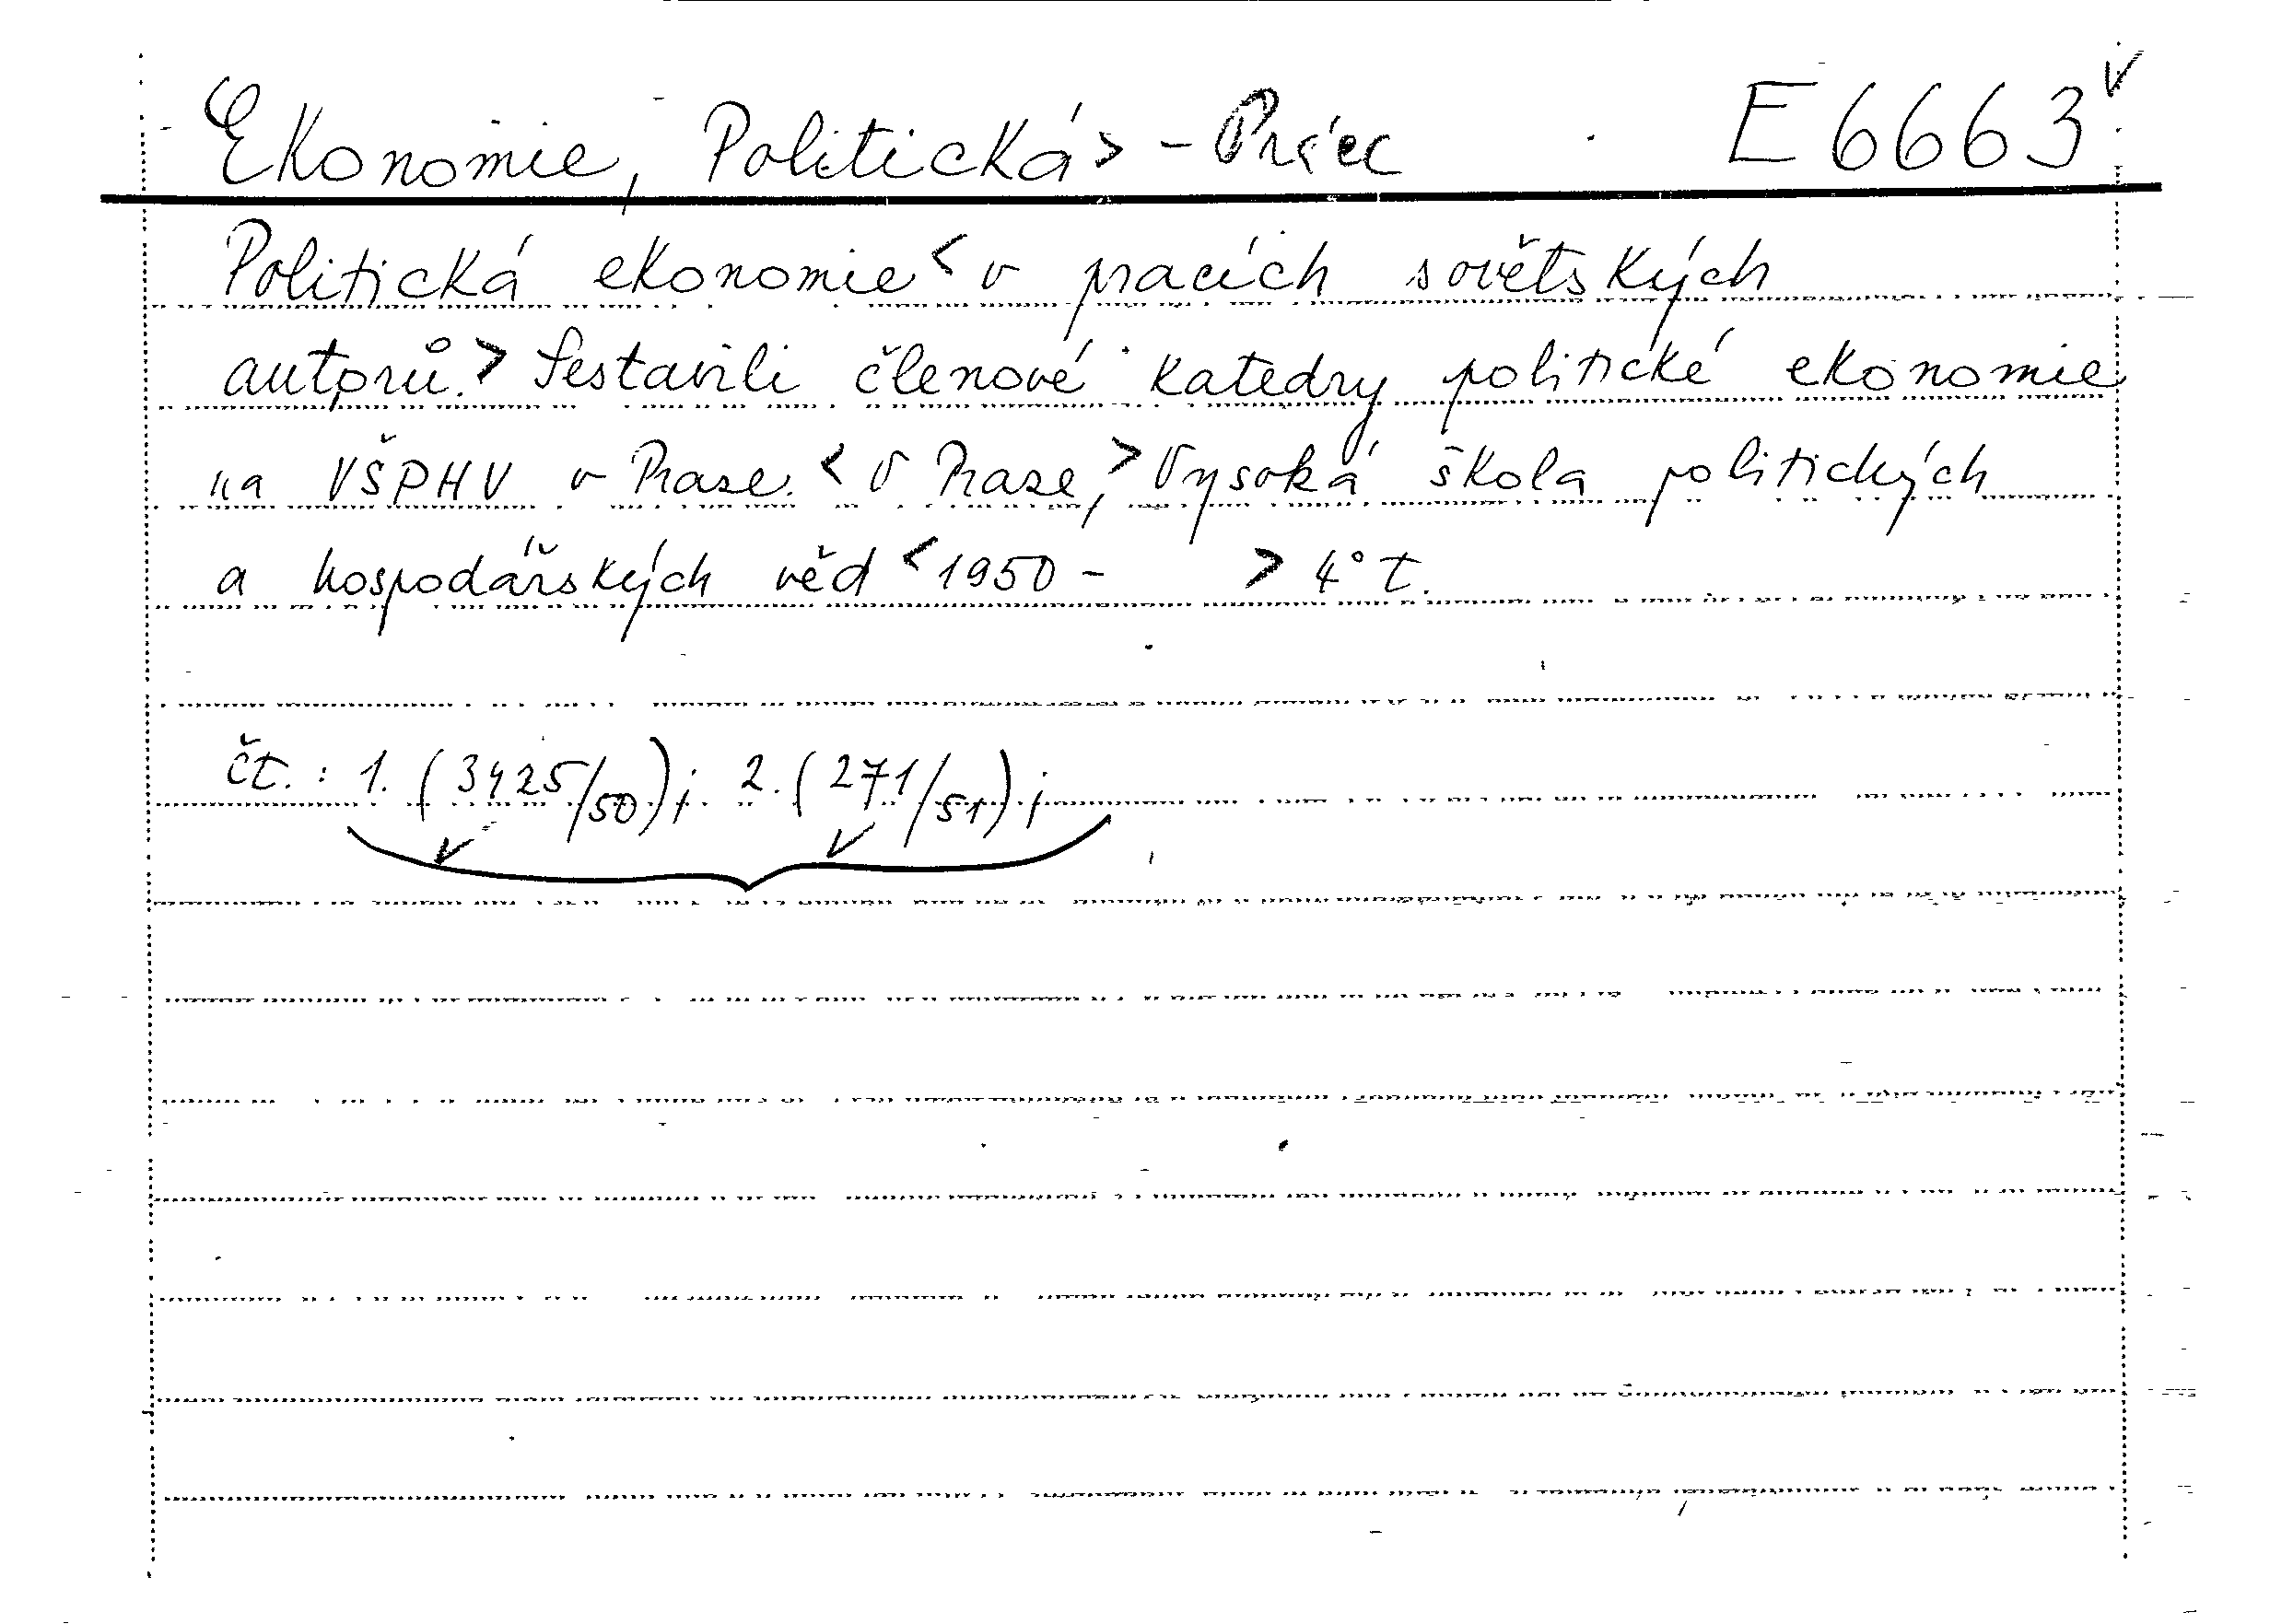 Ekonomie, Politická > - Prác E 6663
Politická ekonomie < v pracích sovětských
autorů. > Sestavili členové katedry politické ekonomie
na VŠPHV v Praze. < V Praze, > Vysoká škola politických
a hospodářských věd < 1950 - > 4° t.
čt. : 1. (3425/50); 2. (271/51);